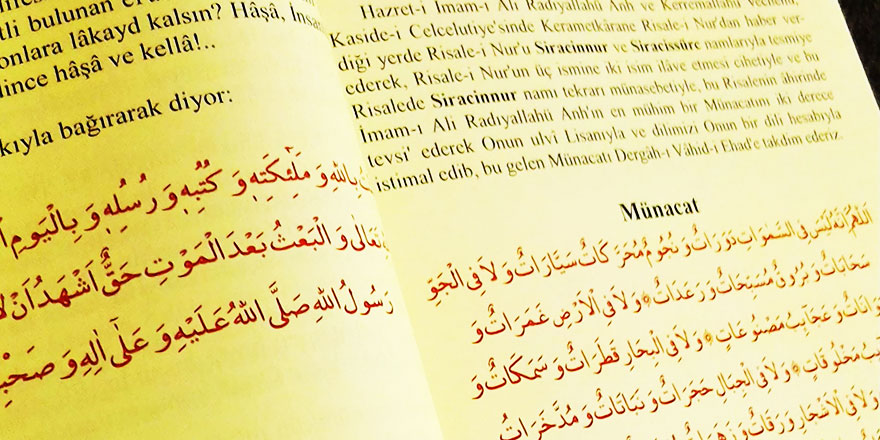 tli bulunan
onlara lâkayd kalsın? Hâşâ, İnsa
lince hâşâ ve kellâ!..
kıyla bağırarak diyor:
بِاللّٰهِ وَ مَلٰٓئِكَتِهٖ وَ كُتُبِهٖ وَ رُسُلِهٖ وَ بِالْيَوْمِ
تَعَالٰى وَ الْبَعْثُ بَعْدَ الْمَوْتِ حَقٌّ اَشْهَدُ اَنْ
رَسُولُ اللّٰهِ صَلَّى اللّٰهُ عَلَيْهِ وَ عَلٰٓى اٰلِهٖ وَ صَحْبِهٖ
Hazret-i İmam-ı Ali Radıyallahü Anh ve Kerremallahü Vechehü,
Kaside-i Celcelutiye'sinde Kerametkârane Risale-i Nur'dan haber ver-
diği yerde Risale-i Nur'u Siracinnur ve Siracissürc namlarıyla tesmiye
ederek, Risale-i Nur'un üç ismine iki isim ilâve etmesi cihetiyle ve bu
Risalede Siracinnur namı tekrarı münasebetiyle, bu Risalenin âhirinde
İmam-ı Ali Radıyallahü Anh'ın en mühim bir Münacatını iki derece
tevsi' ederek Onun ulvî Lisanıyla ve dilimizi Onun bir dili hesabıyla
istimal edib, bu gelen Münacatı Dergâh-ı Vâhid-i Ehad'e takdim ederiz.
Münacat
اَللّٰهُمَّ اِنَّهُ لَيْسَ فِى السَّمٰوَاتِ دَوَرَاتٌ وَ نُجُومٌ وَ مُحَرَّكَاتٌ سَيَّارَاتٌ وَ لَا فِى الْجَوِّ
سَحَابَاتٌ وَ بُرُوقٌ مُسَبِّحَاتٌ وَ رَعَدَاتٌ وَ لَا فِى الْاَرْضِ غَمَرَاتٌ وَ
وَ عَجَايِبُ مَصْنُوعَاتٍ وَ لَا فِى الْبِحَارِ قَطَرَاتٌ وَ سَمَكَاتٌ وَ
مَخْلُوقَاتٍ وَ لَا فِى الْجِبَالِ حَجَرَاتٌ وَ نَبَاتَاتٌ وَ مُدَّخَرَاتُ
وَ لَا فِى الْاَشْجَارِ وَرَقَاتٌ وَ